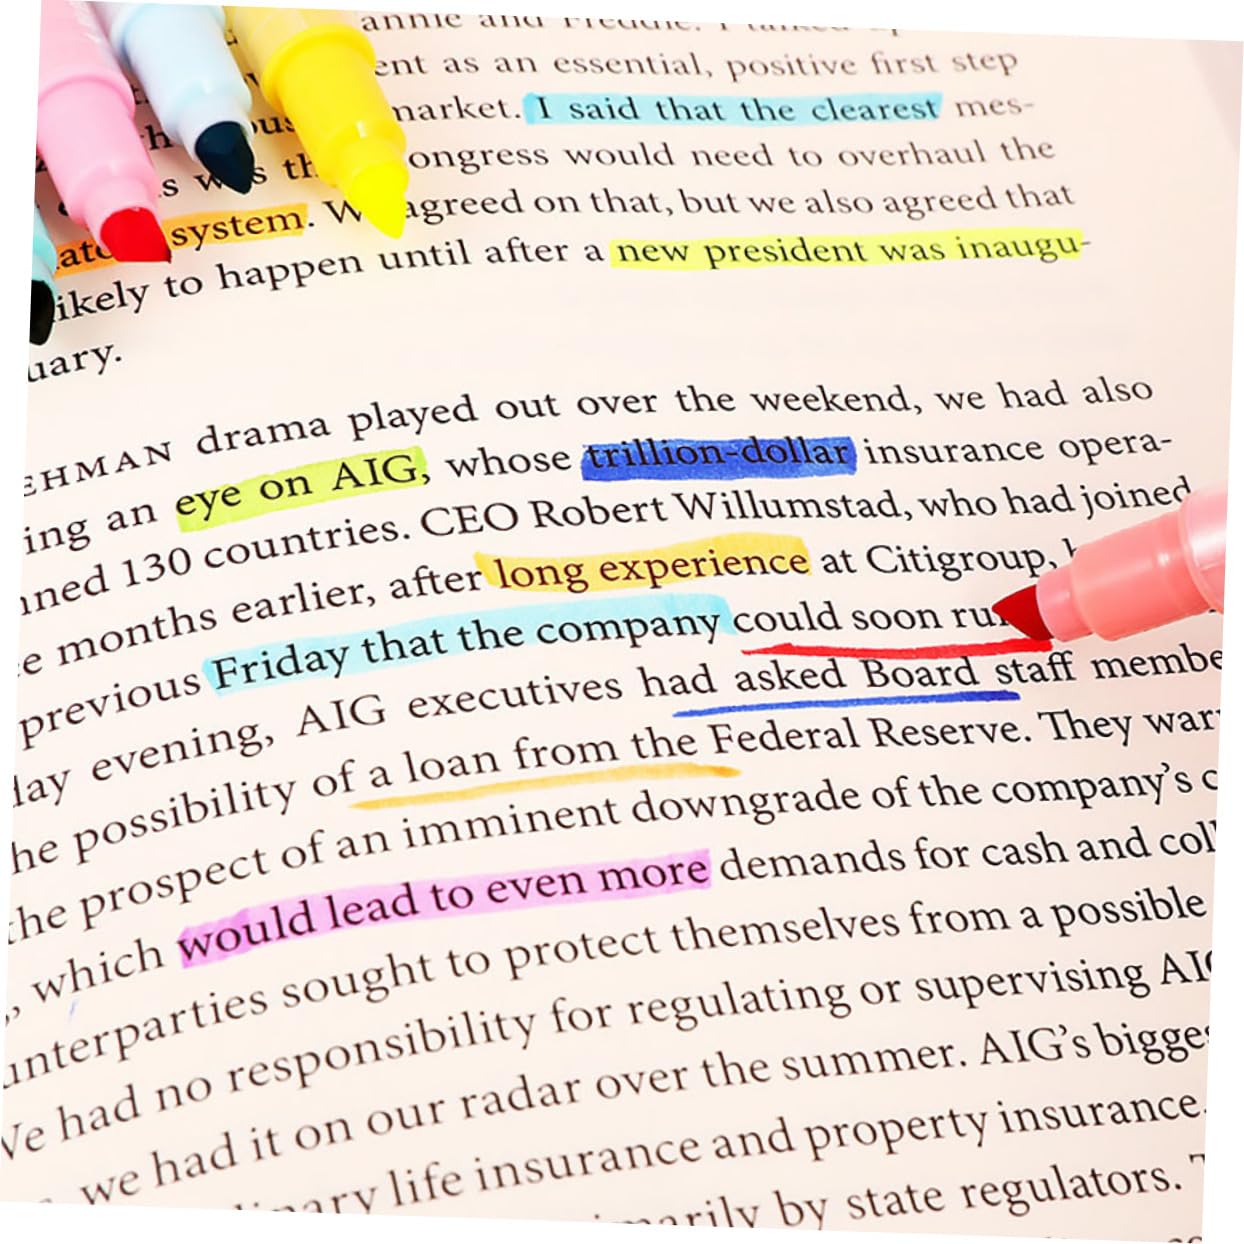 annie and Freddie. I talked
ent as an essential, positive first step
market. I said that the clearest mes-
ongress would need to overhaul the
system. agreed on that, but we also agreed that
ikely to happen until after a new president was inaugu-
uary.
EHMAN drama played out over the weekend, we had also
ing an eye on AIG, whose trillion-dollar insurance opera-
nned 130 countries. CEO Robert Willumstad, who had joined
e months earlier, after long experience at Citigroup,
previous Friday that the company could soon ru
day evening, AIG executives had asked Board staff membe
he possibility of a loan from the Federal Reserve. They war
the prospect of an imminent downgrade of the company's c
, which would lead to even more demands for cash and coll
unterparties sought to protect themselves from a possible
We had no responsibility for regulating or supervising AIG
we had it on our radar over the summer. AIG's bigges
inary life insurance and property insurance.
marily by state regulators.